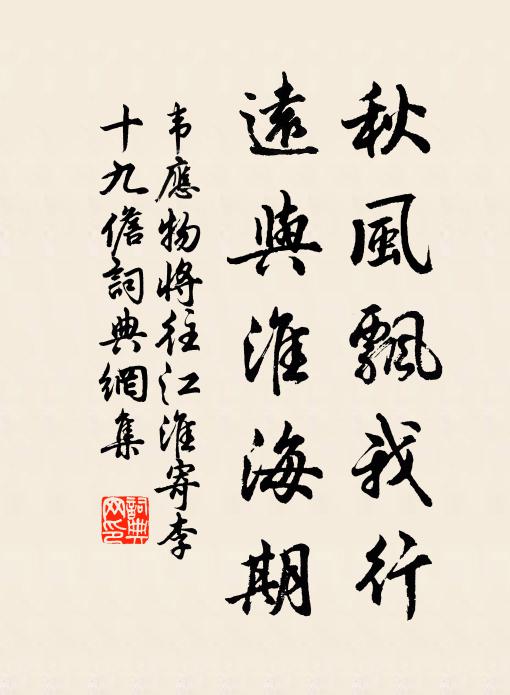 秋風飄我行
遠與淮海期
韦應物將往江淮寄李
十九儋詞典網集
詞典網印